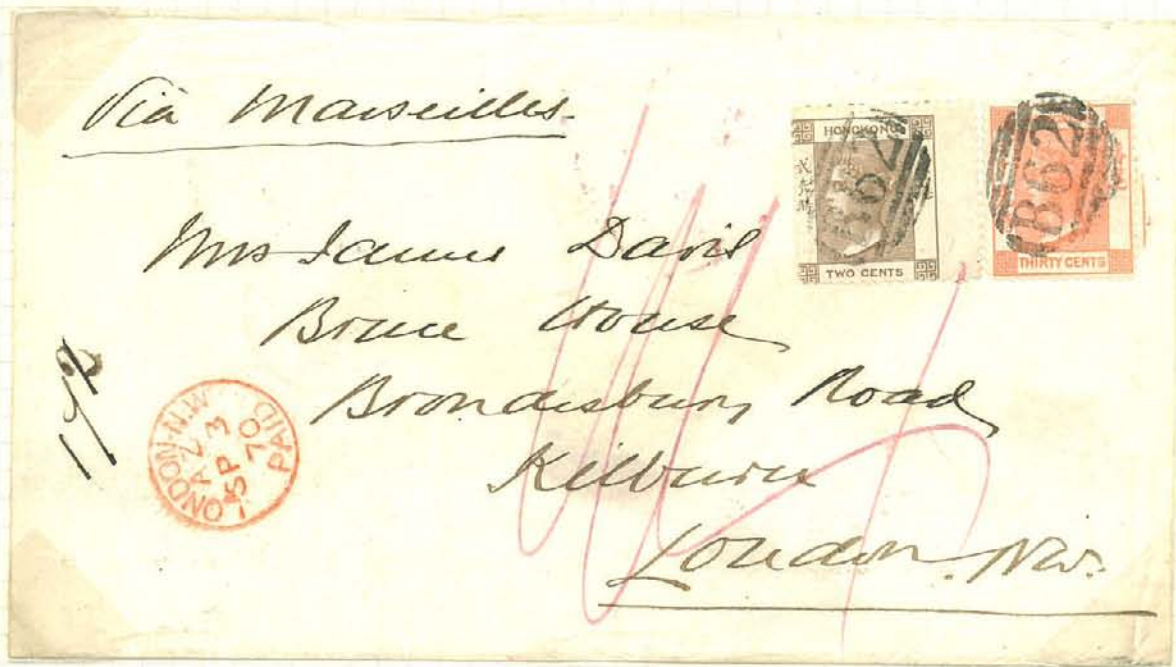 Via Marseilles
HONGKONG
TWO CENTS
B62
THIRTY CENTS
B62
Mrs James David
Bruce House
Brondesbury Road
Kilburn
London. NW.
LONDON-N.W
AZ
SP 3
70
PAID